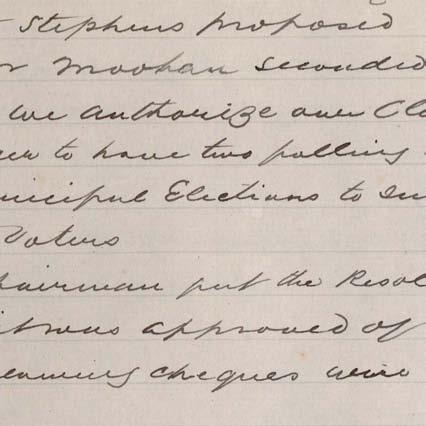 Stephens proposed
Moohan seconded
we authorize our Cl
to have two polling
nicipal Elections to
Voters
hairman put the Resol
it was approved of
cheques were